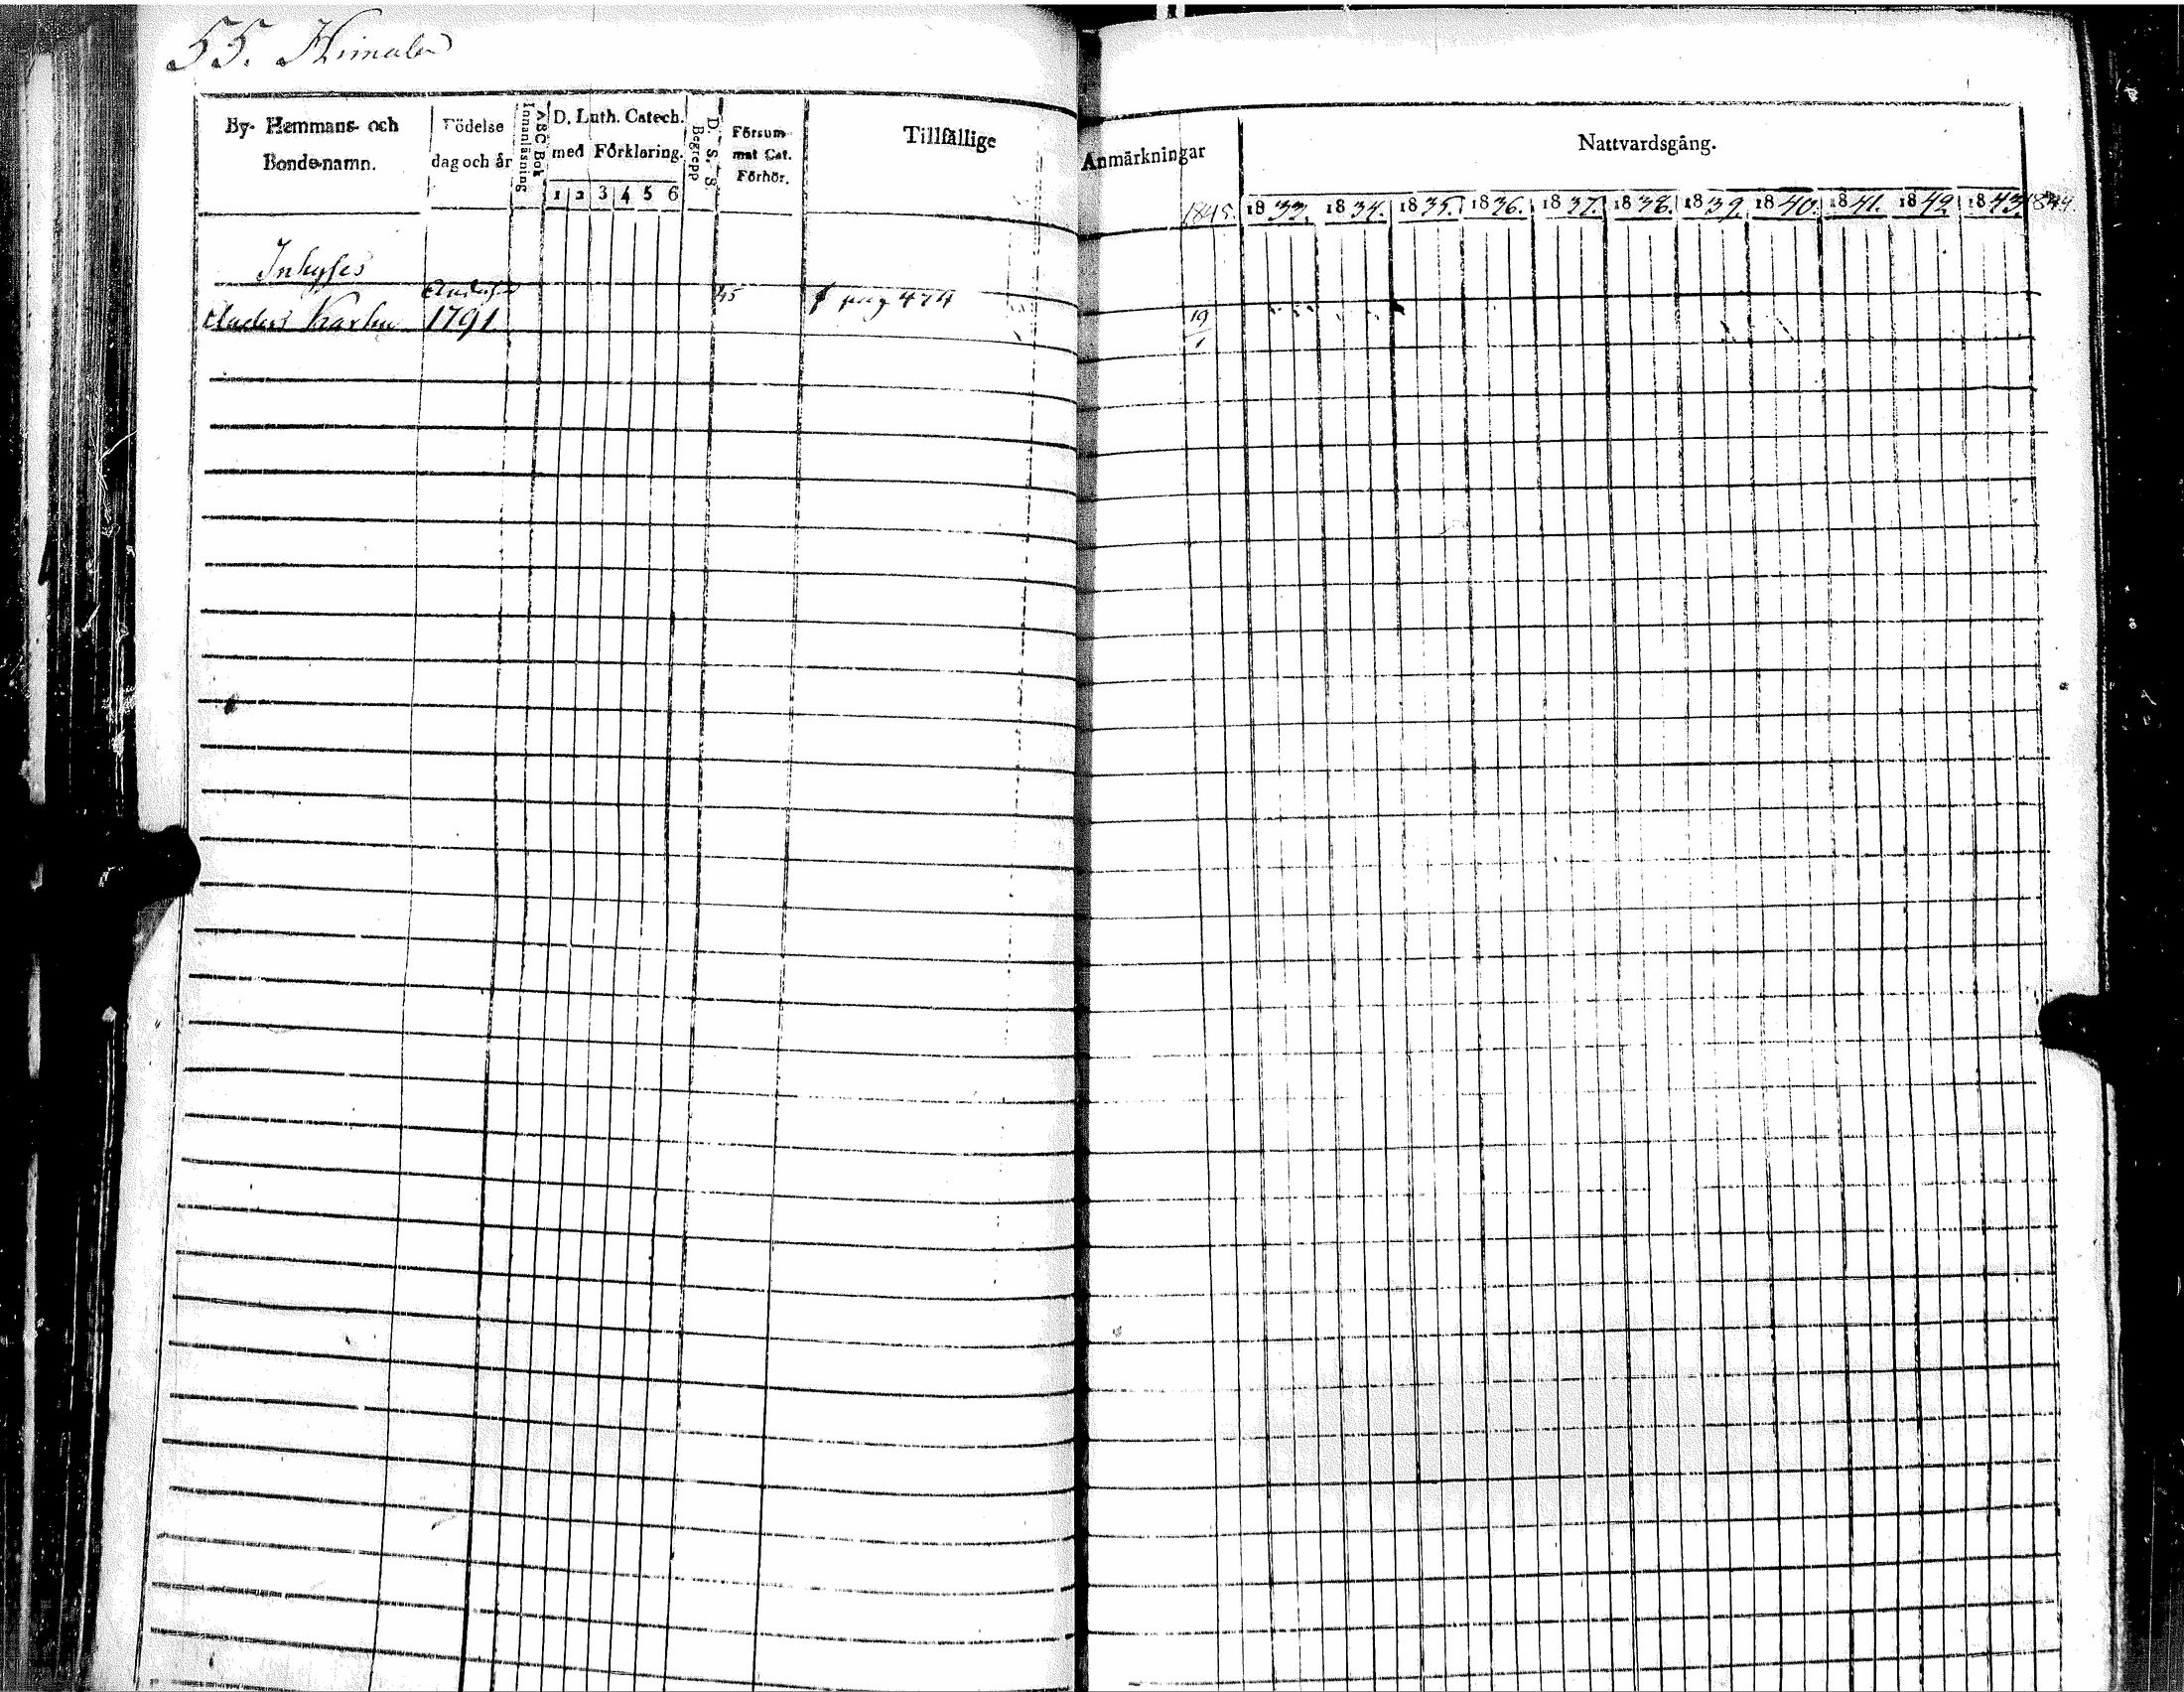 55. Himala
By- Hemmans- och
Bondenamn.
Födelse
dag och år
ABC Bok
Innanläsning
D. Luth. Catech.
med Förklaring.
1 2 3 4 5 6
D. S. S.
Begrepp
Försum
mat Cat.
Förhör.
Tillfällige
Anmärkningar
Nattvardsgång.
1845. 1833. 1834. 1835. 1836. 1837. 1838. 1839. 1840. 1841. 1842. 1843. 1844
Inhyses
Anders 1791
45
pag 474
19